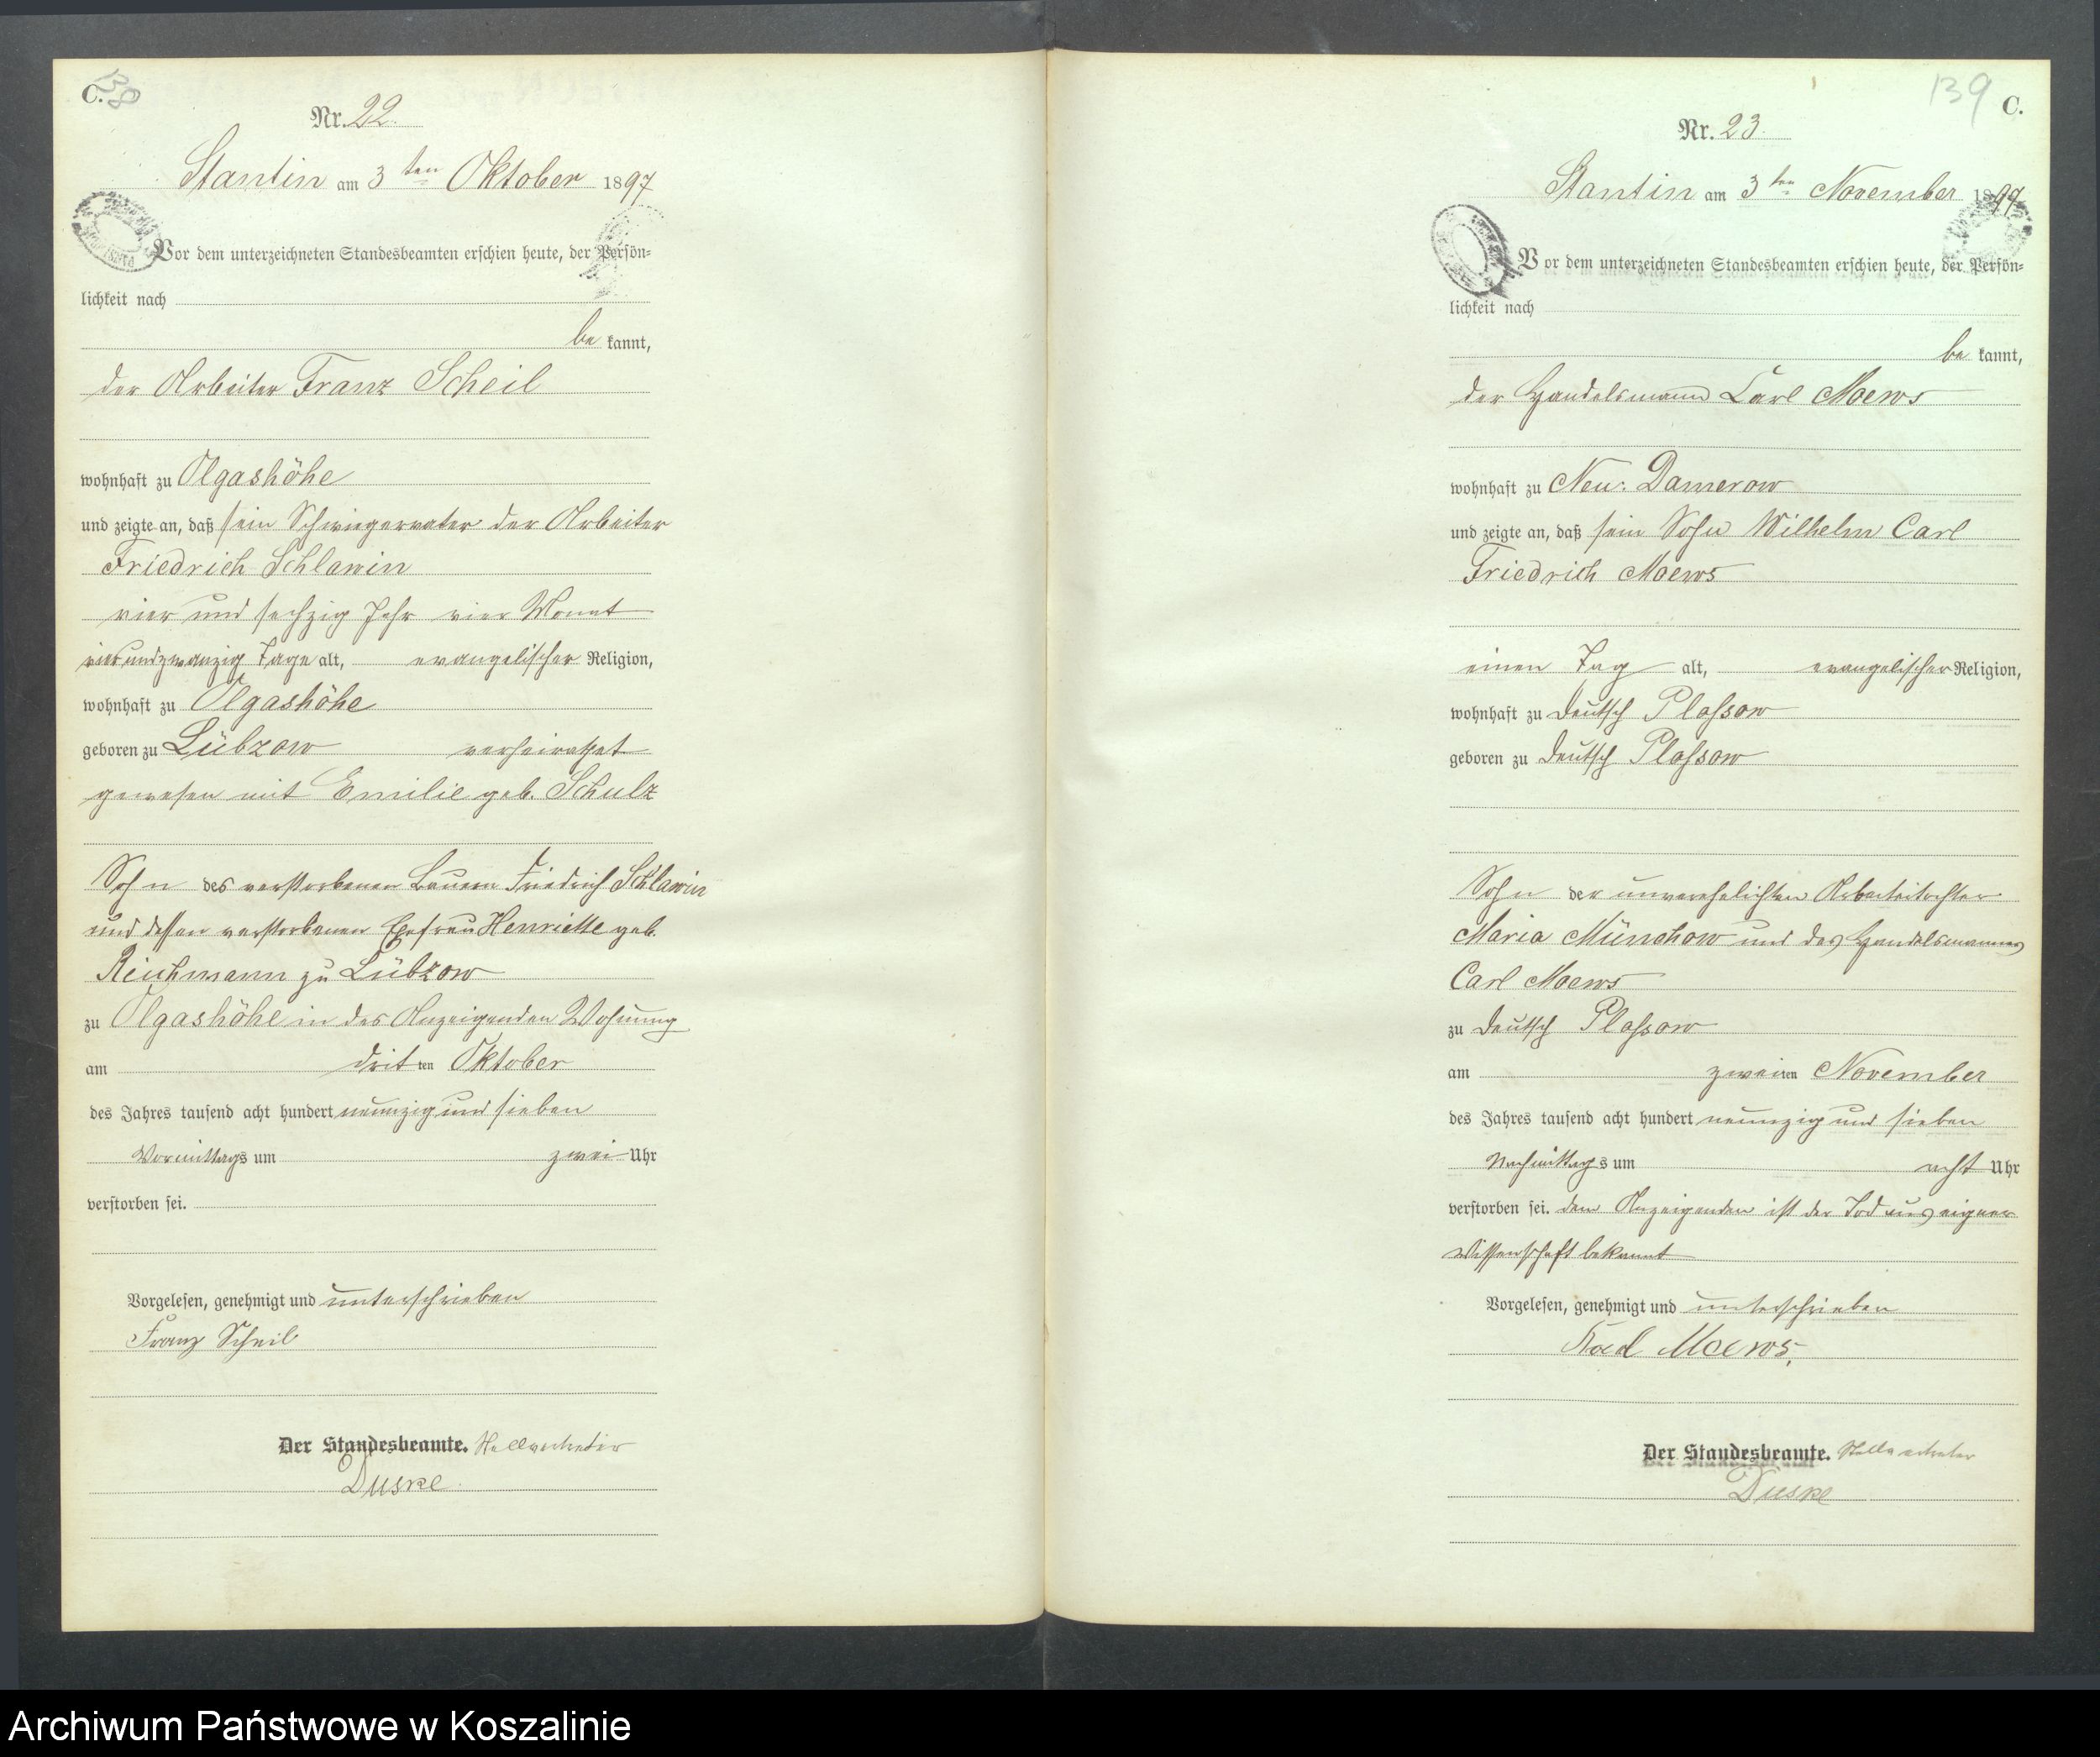 C.
138
Nr. 22.
Stantin am 3 ten Oktober 1897
Vor dem unterzeichneten Standesbeamten erschien heute, der Persön-
lichkeit nach
be kannt,
der Arbeiter Franz Scheil
wohnhaft zu Olgashöhe
und zeigte an, daß sein Schwiegervater der Arbeiter
Friedrich Schlawin
vier und sechzig Jahr vier Monat
vierundzwanzig Tage alt, evangelischer Religion,
wohnhaft zu Olgashöhe
geboren zu Lübzow verheirathet
gewesen mit Emilie geb. Schulz
Sohn des verstorbenen Bauern Friedrich Schlawin
und dessen verstorbenen Ehefrau Henriette geb.
Reichmann zu Lübzow
zu Olgashöhe in des Anzeigenden Wohnung
am dritten Oktober
des Jahres tausend acht hundert neunzig und sieben
Vormittags um zwei Uhr
verstorben sei.
Vorgelesen, genehmigt und unterschrieben
Franz Scheil
Der Standesbeamte. Stellvertreter
Duske
139 C.
Nr. 23.
Stantin am 3 ten November 1897
Vor dem unterzeichneten Standesbeamten erschien heute, der Persön-
lichkeit nach
be kannt,
der Handelsmann Carl Moews
wohnhaft zu Neu-Damerow
und zeigte an, daß sein Sohn Wilhelm Carl
Friedrich Moews
einen Tag alt, evangelischer Religion,
wohnhaft zu Deutsch Plassow
geboren zu Deutsch Plassow
Sohn der unverehelichten Arbeitertochter
Maria Münchow und des Handelsmannes
Carl Moews
zu Deutsch Plassow
am zweiten November
des Jahres tausend acht hundert neunzig und sieben
Nachmittags um acht Uhr
verstorben sei. dem Anzeigenden ist der Tod aus eigner
Wissenschaft bekannt
Vorgelesen, genehmigt und unterschrieben
Karl Moews.
Der Standesbeamte. Stellvertreter
Duske
Archiwum Państwowe w Koszalinie